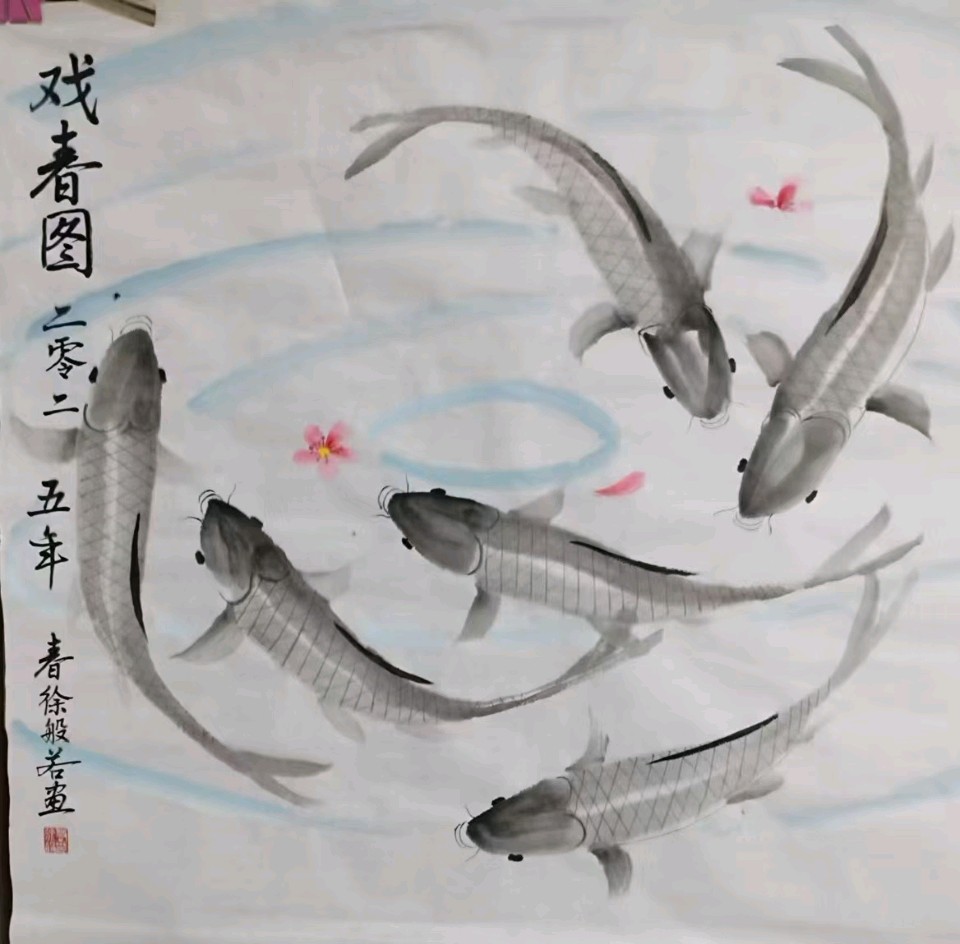 戏春图
二零二五年
春徐般若画